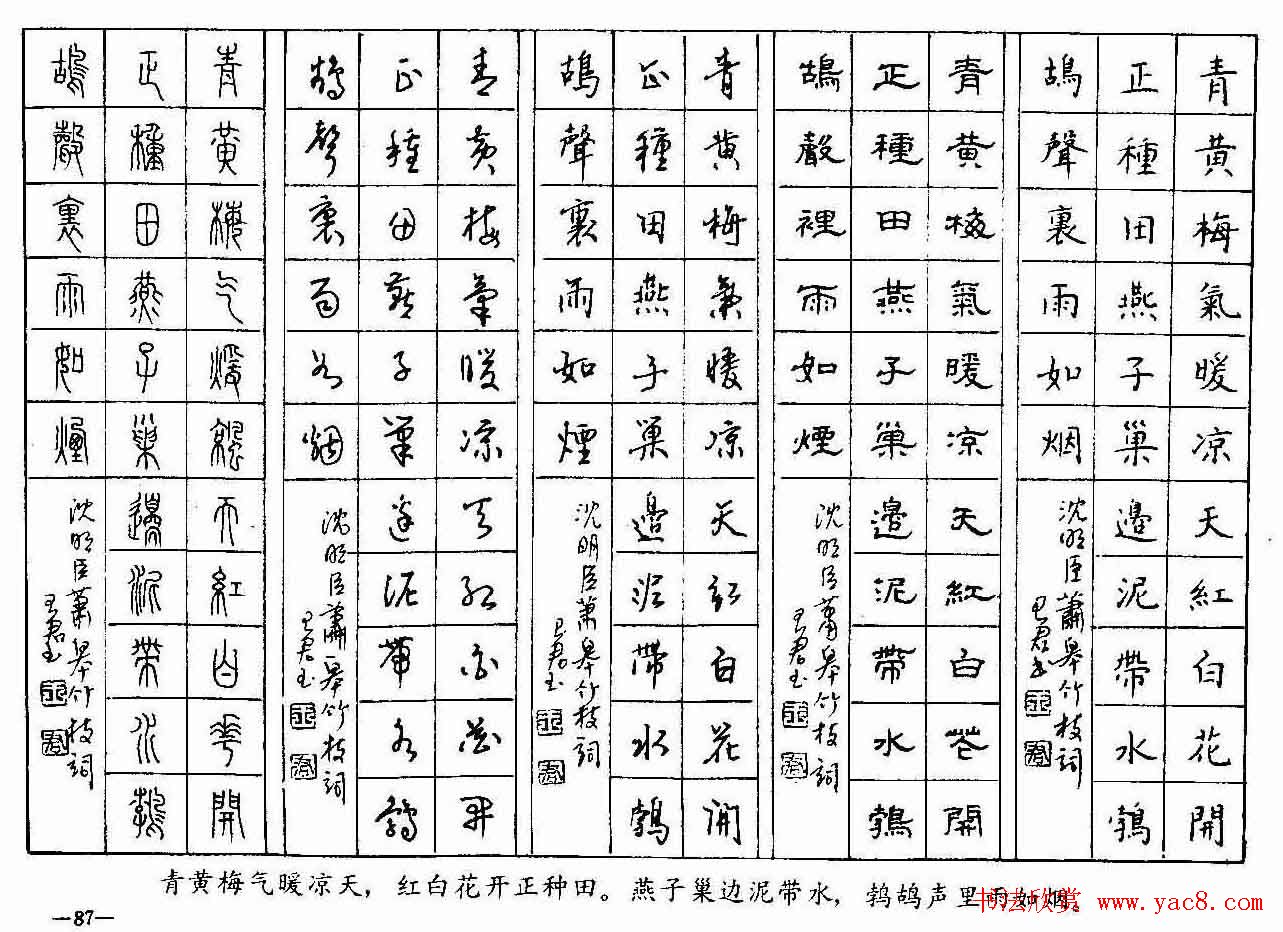 青黄梅氣暖凉天紅白花開
正種田燕子巢邊泥帶水鵓
鴣聲裏雨如烟
沈明臣蕭皋竹枝詞
青黄梅氣暖凉天紅白花開
正種田燕子巢邊泥帶水鵓
鴣聲裡雨如煙
沈明臣蕭皋竹枝詞
青黄梅氣暖凉天紅白花開
正種田燕子巢邊泥帶水鵓
鴣聲裏雨如煙
沈明臣蕭皋竹枝詞
青黄梅氣暖凉天紅白花開
正種田燕子巢邊泥帶水鵓
鴣聲裏雨如烟
沈明臣蕭皋竹枝詞
青黄梅气煖凉天紅白華開
正種田燕子巢邊泥帶水鵓
鴣聲裏雨如煙
沈明臣蕭皋竹枝詞
青黄梅气暖凉天，红白花开正种田。燕子巢边泥带水，鹁鸪声里雨如烟。
书法欣赏 www.yac8.com
—87—